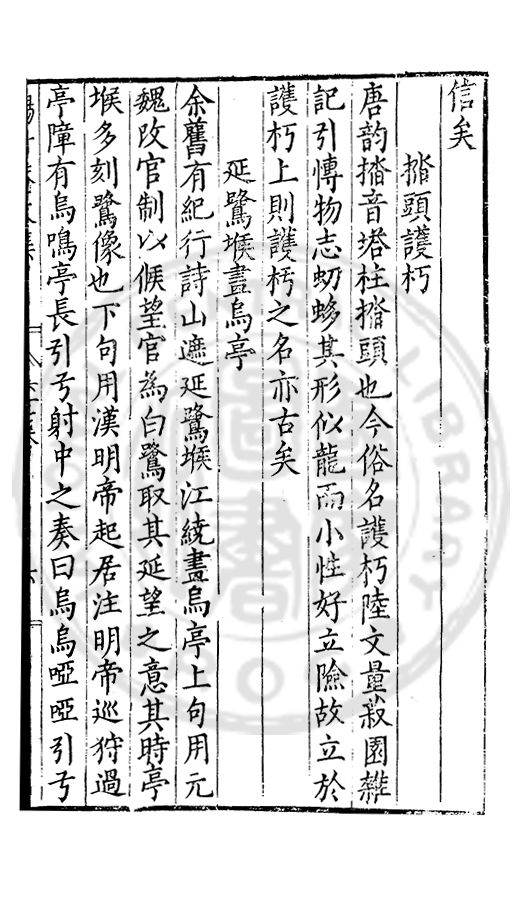 信矣
揩頭護朽
唐韵揩音塔柱揩頭也今俗名護朽陸文量菽園雜
記引博物志蚴蛥其形似龍而小性好立險故立於
護朽上則護朽之名亦古矣
延鷺堠畫烏亭
余舊有紀行詩山遮延鷺堠江繞畫烏亭上句用元
魏改官制以候望官為白鷺取其延望之意其時亭
堠多刻鷺像也下句用漢明帝起居注明帝巡狩過
亭障有烏鳴亭長引弓射中之奏曰烏烏啞啞引弓